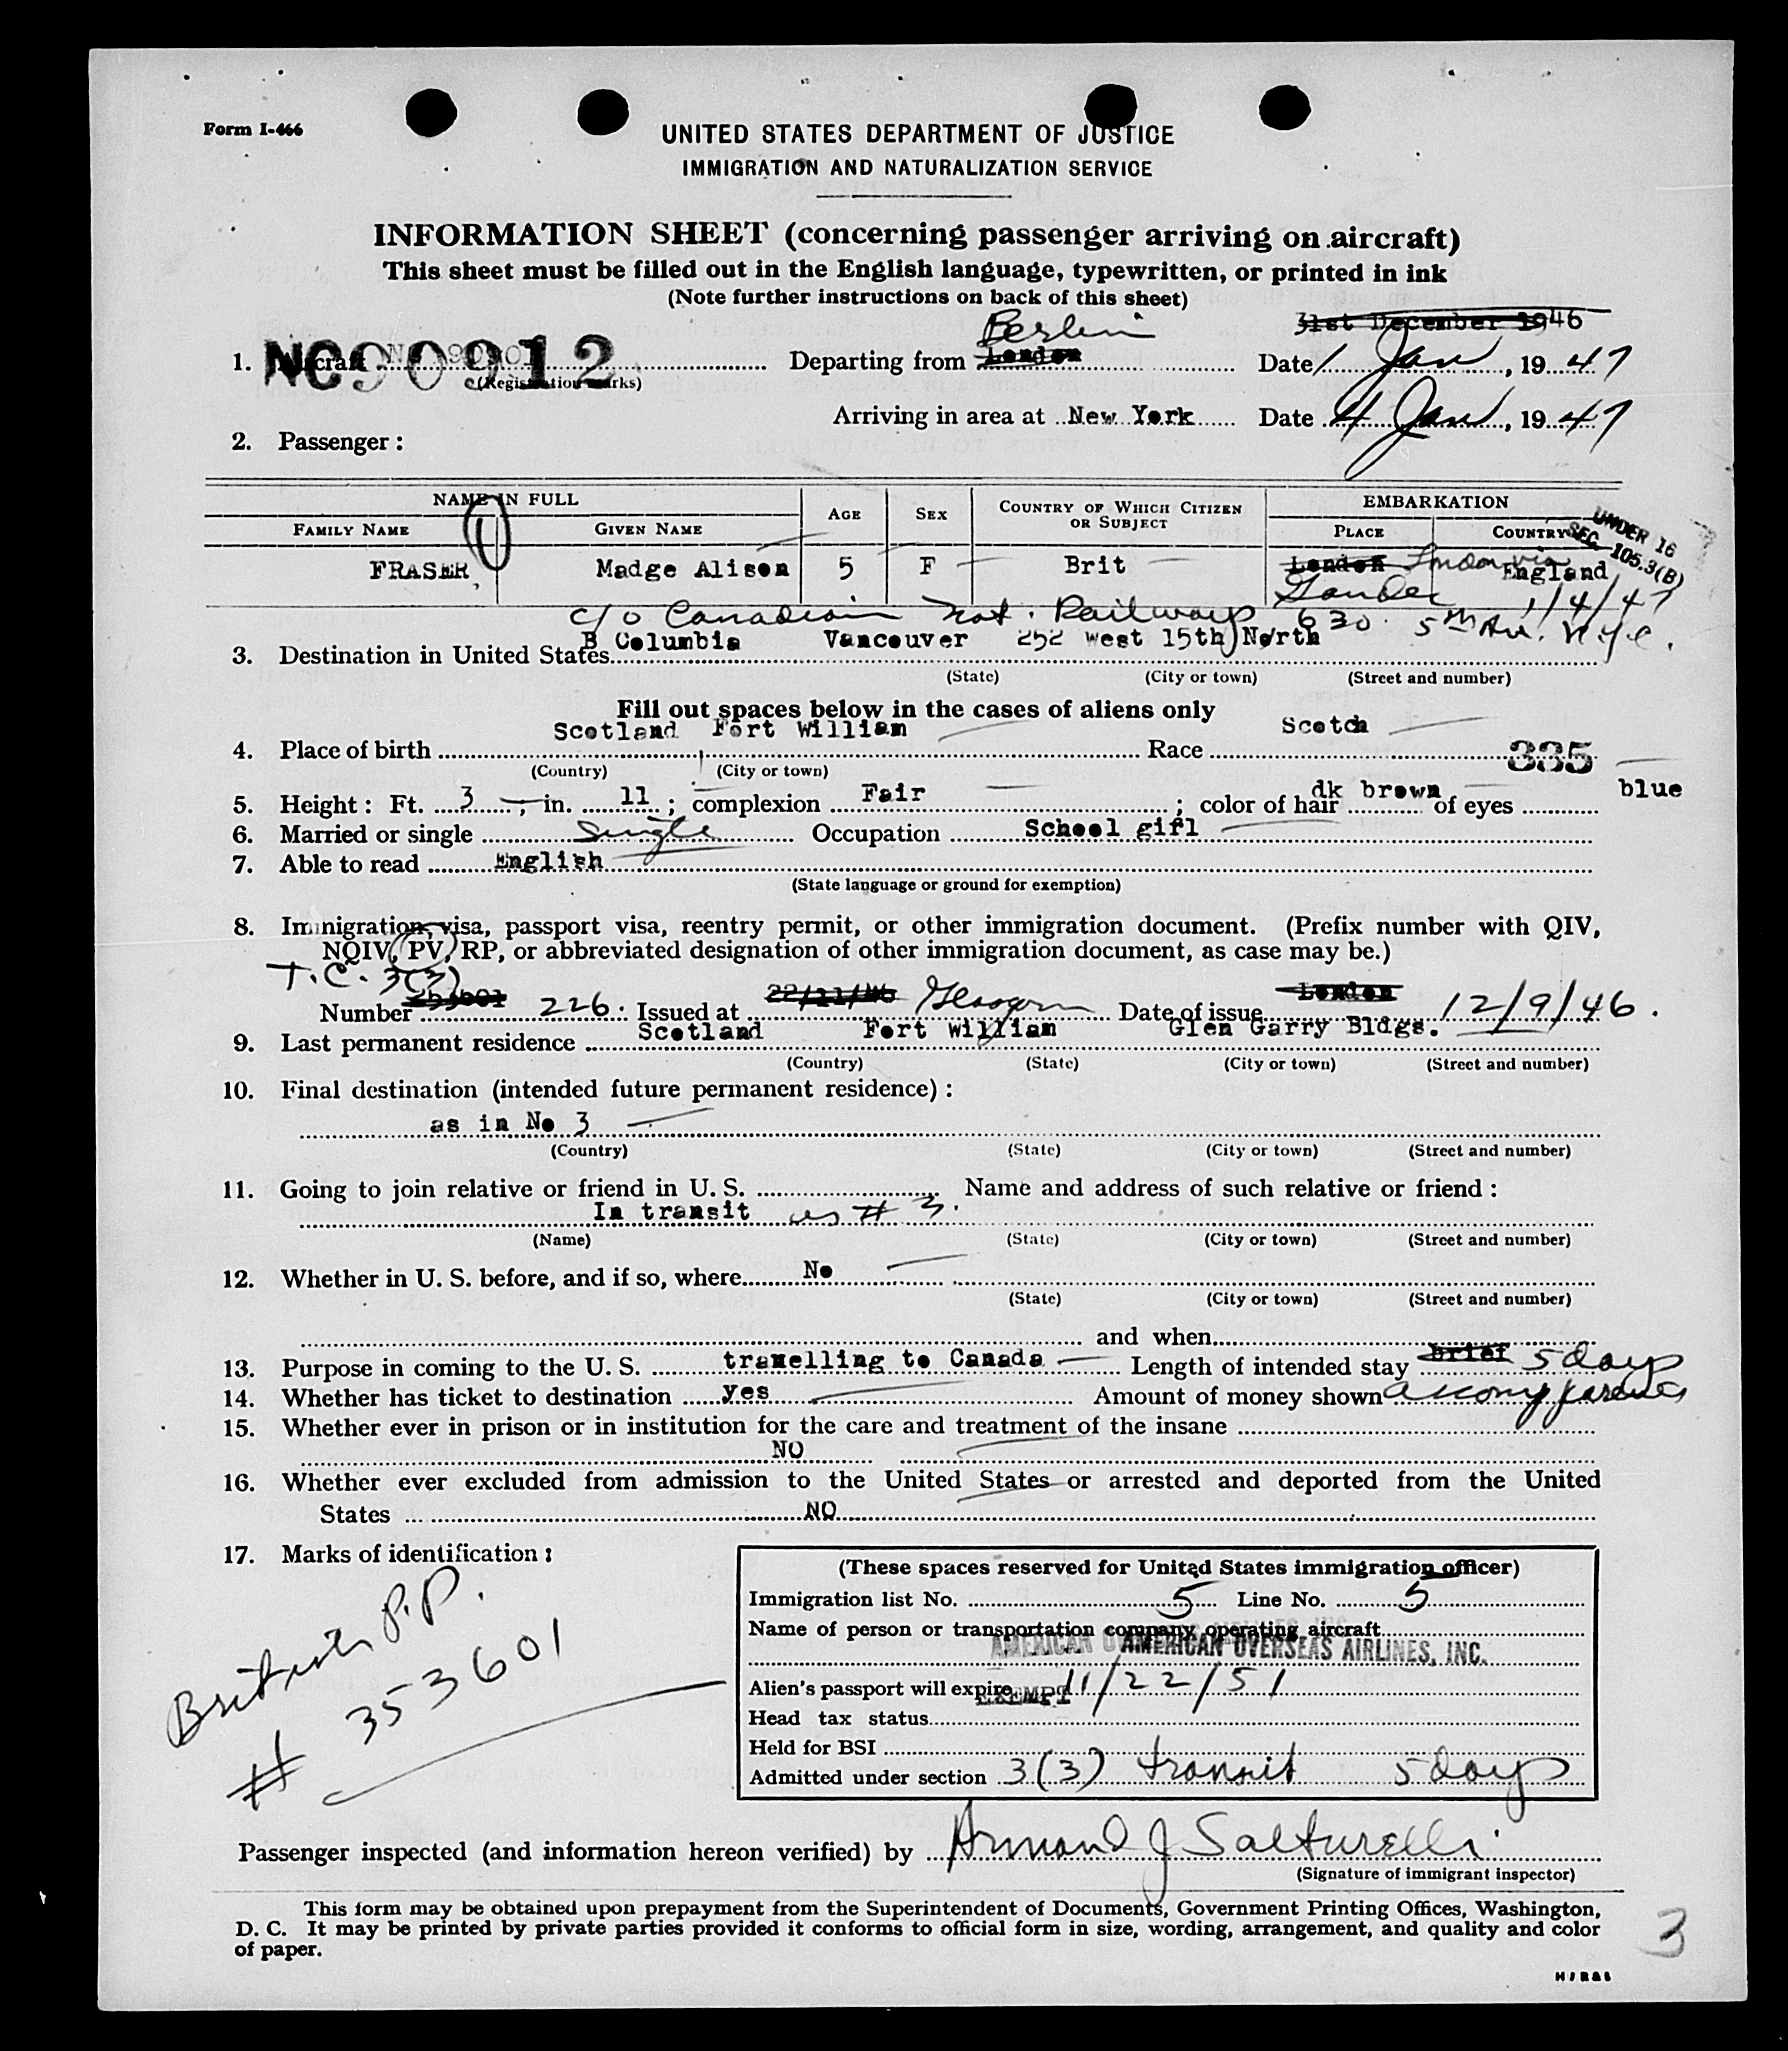 Form I-466
UNITED STATES DEPARTMENT OF JUSTICE
IMMIGRATION AND NATURALIZATION SERVICE
INFORMATION SHEET (concerning passenger arriving on aircraft)
This sheet must be filled out in the English language, typewritten, or printed in ink
(Note further instructions on back of this sheet)
31st December 1946
Berlin
1. Aircraft NC90912 Departing from London Date 1 Jan, 1947
(Registration marks)
Arriving in area at New York Date 4 Jan, 1947
2. Passenger:
NAME IN FULL AGE SEX COUNTRY OF WHICH CITIZEN OR SUBJECT EMBARKATION
FAMILY NAME GIVEN NAME PLACE COUNTRY
UNDER 16
SEC. 105.3(B)
FRASER, Madge Alison 5 F Brit London London via England
Gander 1/4/47
c/o Canadian Nat. Railways 630 5th Av. NYC.
B Columbia Vancouver 252 West 15th North
3. Destination in United States
(State) (City or town) (Street and number)
Fill out spaces below in the cases of aliens only
4. Place of birth Scotland Fort William Race Scotch
335
(Country) (City or town)
5. Height: Ft. 3, in. 11; complexion Fair; color of hair dk brown of eyes blue
6. Married or single Single Occupation School girl
7. Able to read English
(State language or ground for exemption)
8. Immigration visa, passport visa, reentry permit, or other immigration document. (Prefix number with QIV,
NQIV, PV, RP, or abbreviated designation of other immigration document, as case may be.)
T.C. 3(3)
Number 226. Issued at 22/11/46 Glasgow Date of issue London 12/9/46.
9. Last permanent residence Scotland Fort William Glen Garry Bldgs.
(Country) (State) (City or town) (Street and number)
10. Final destination (intended future permanent residence):
as in No 3
(Country) (State) (City or town) (Street and number)
11. Going to join relative or friend in U. S. Name and address of such relative or friend:
In transit as # 3.
(Name) (State) (City or town) (Street and number)
12. Whether in U. S. before, and if so, where No
(State) (City or town) (Street and number)
and when
13. Purpose in coming to the U. S. tramelling to Canada Length of intended stay brief 5 days
14. Whether has ticket to destination yes Amount of money shown accomp parents
15. Whether ever in prison or in institution for the care and treatment of the insane
NO
16. Whether ever excluded from admission to the United States or arrested and deported from the United
States NO
17. Marks of identification:
British P.P.
# 353601
(These spaces reserved for United States immigration officer)
Immigration list No. 5 Line No. 5
Name of person or transportation company operating aircraft
AMERICAN OVERSEAS AIRLINES, INC.
Alien's passport will expire 11/22/51
EXEMPT
Head tax status
Held for BSI
Admitted under section 3(3) transit 5 days
Passenger inspected (and information hereon verified) by Armand J Salturelli
(Signature of immigrant inspector)
This form may be obtained upon prepayment from the Superintendent of Documents, Government Printing Offices, Washington,
D. C. It may be printed by private parties provided it conforms to official form in size, wording, arrangement, and quality and color
of paper.
3